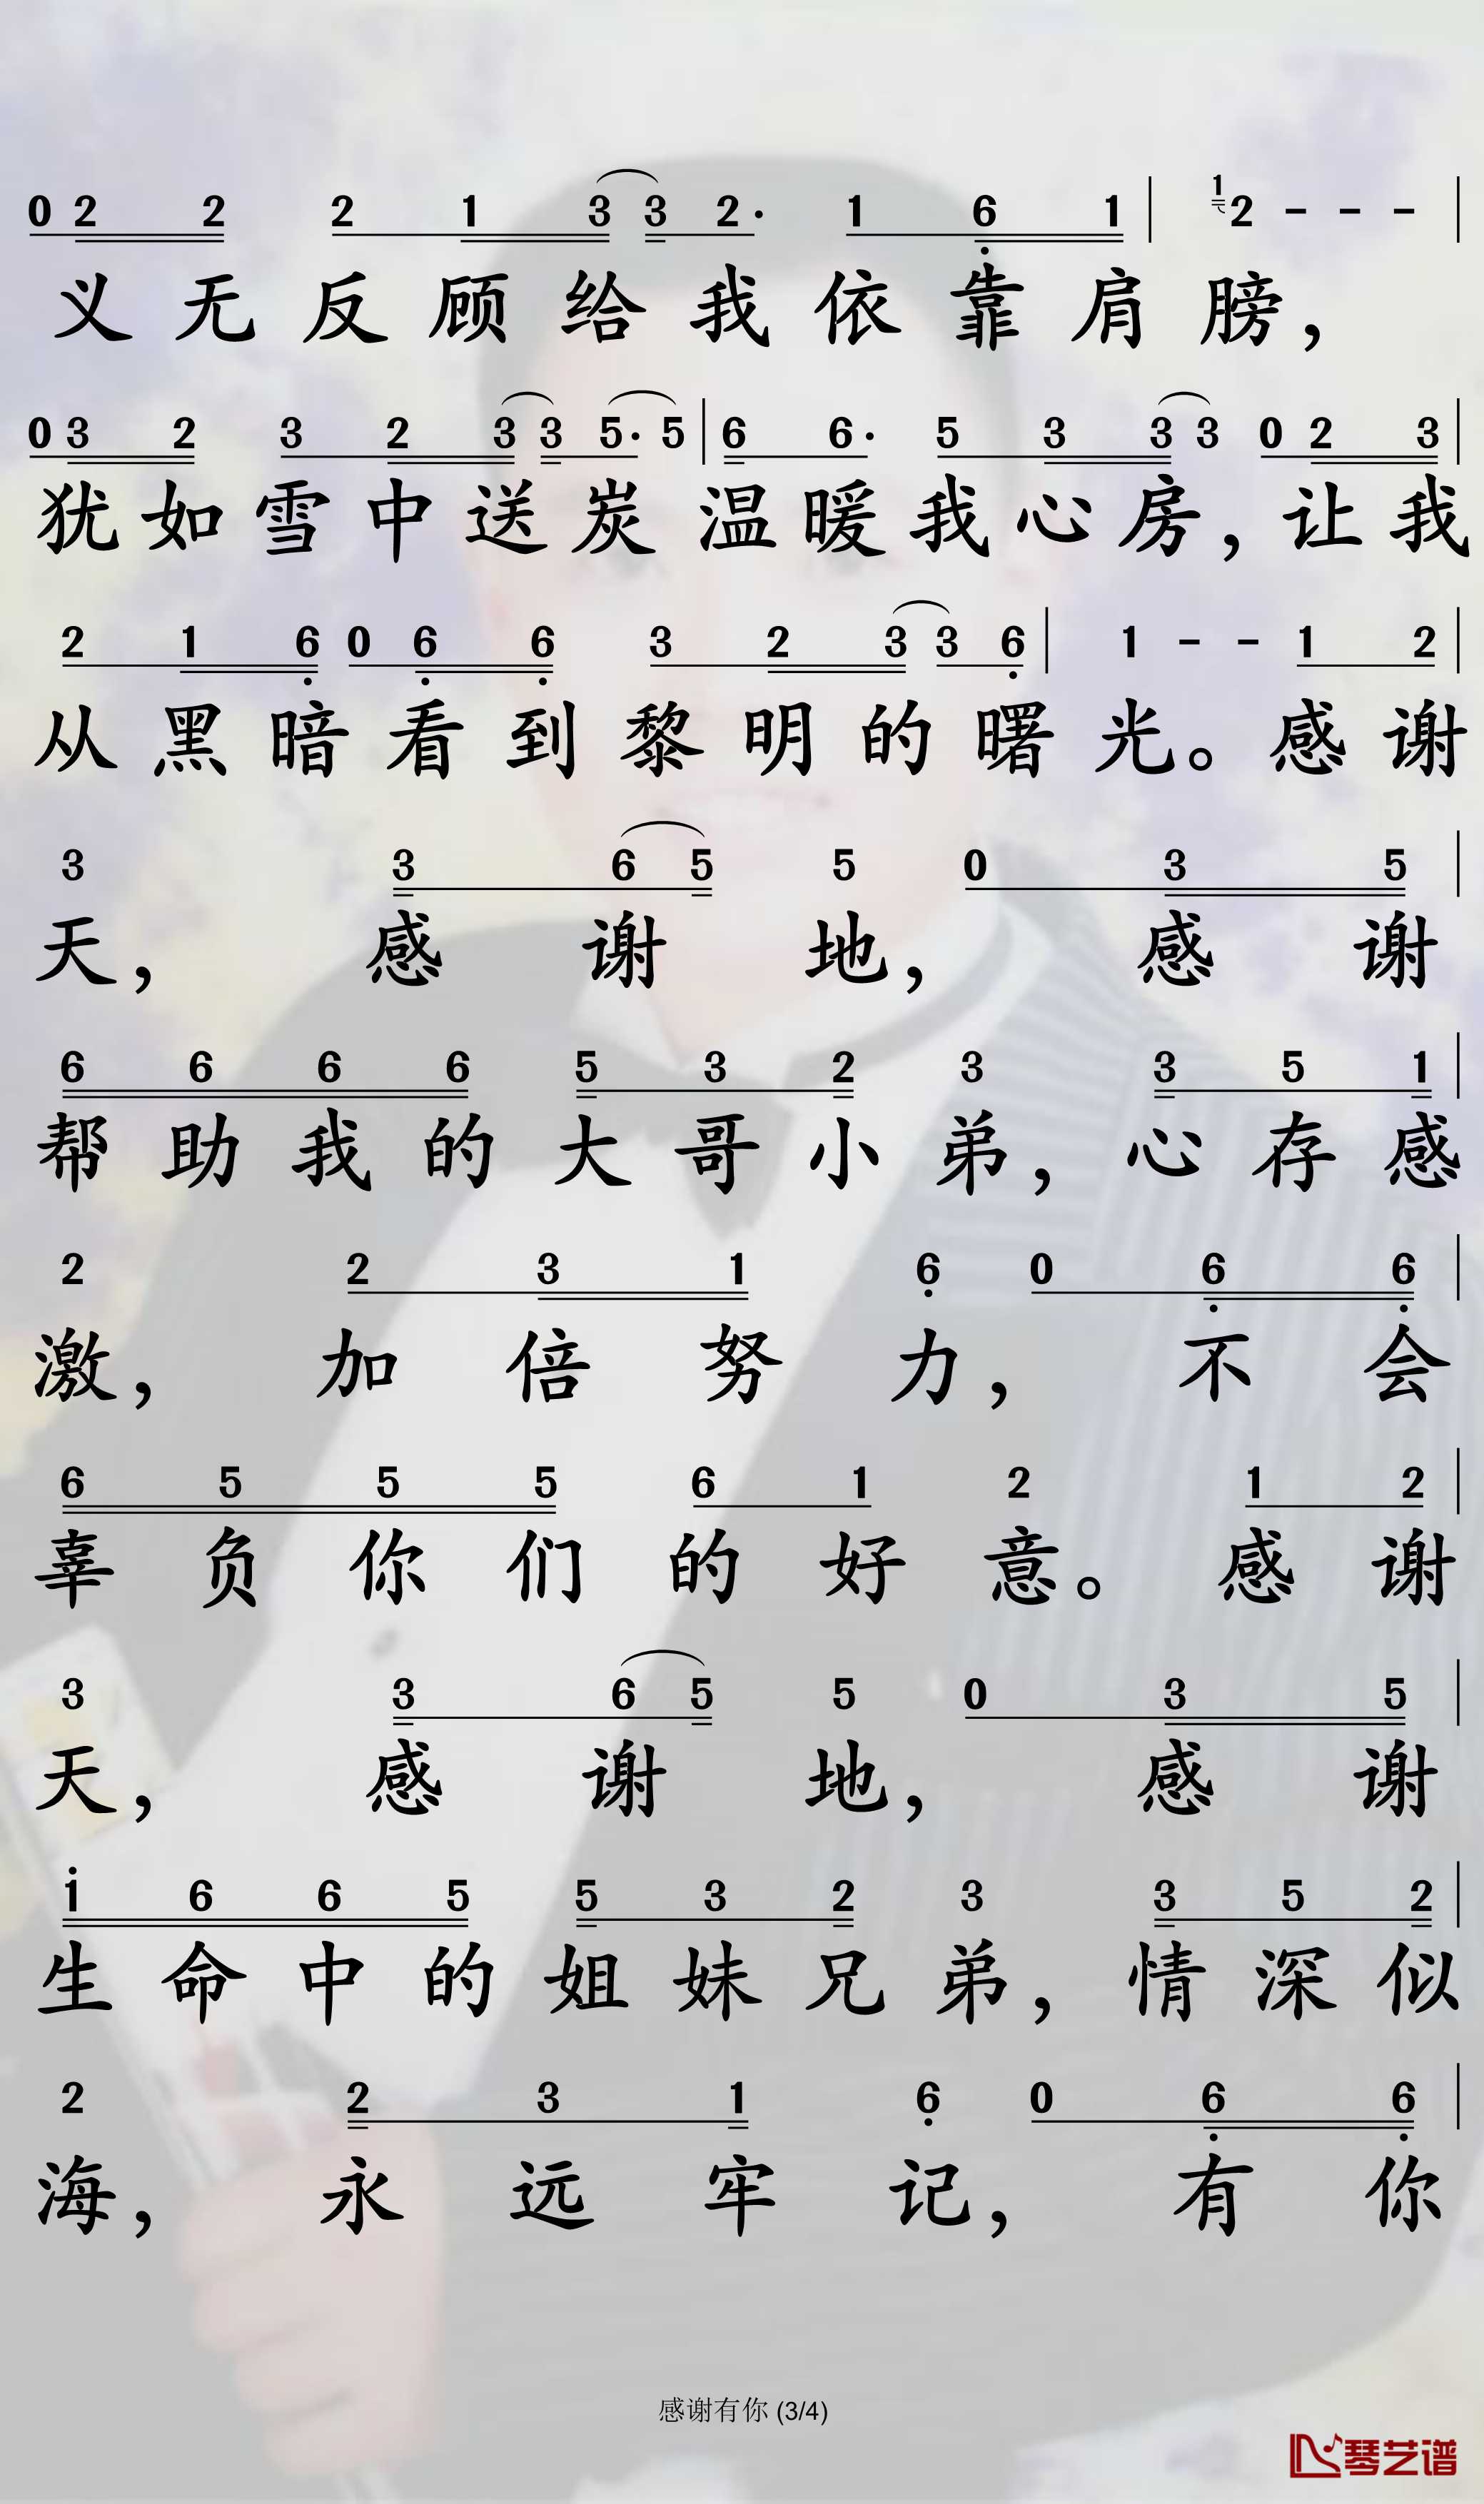 0 2 2 2 1 3 3 2· 1 6 1 | 1 2 - - - |
义无反顾给我依靠肩膀，
0 3 2 3 2 3 3 5· 5 | 6 6· 5 3 3 3 0 2 3 |
犹如雪中送炭温暖我心房，让我
2 1 6 0 6 6 3 2 3 3 6 | 1 - - 1 2 |
从黑暗看到黎明的曙光。感谢
3 3 6 5 5 0 3 5 |
天，感谢地，感谢
6 6 6 6 5 3 2 3 3 5 1 |
帮助我的大哥小弟，心存感
2 2 3 1 6 0 6 6 |
激，加倍努力，不会
6 5 5 5 6 1 2 1 2 |
辜负你们的好意。感谢
3 3 6 5 5 0 3 5 |
天，感谢地，感谢
i 6 6 5 5 3 2 3 3 5 2 |
生命中的姐妹兄弟，情深似
2 2 3 1 6 0 6 6 |
海，永远牢记，有你
感谢有你 (3/4)
琴艺谱